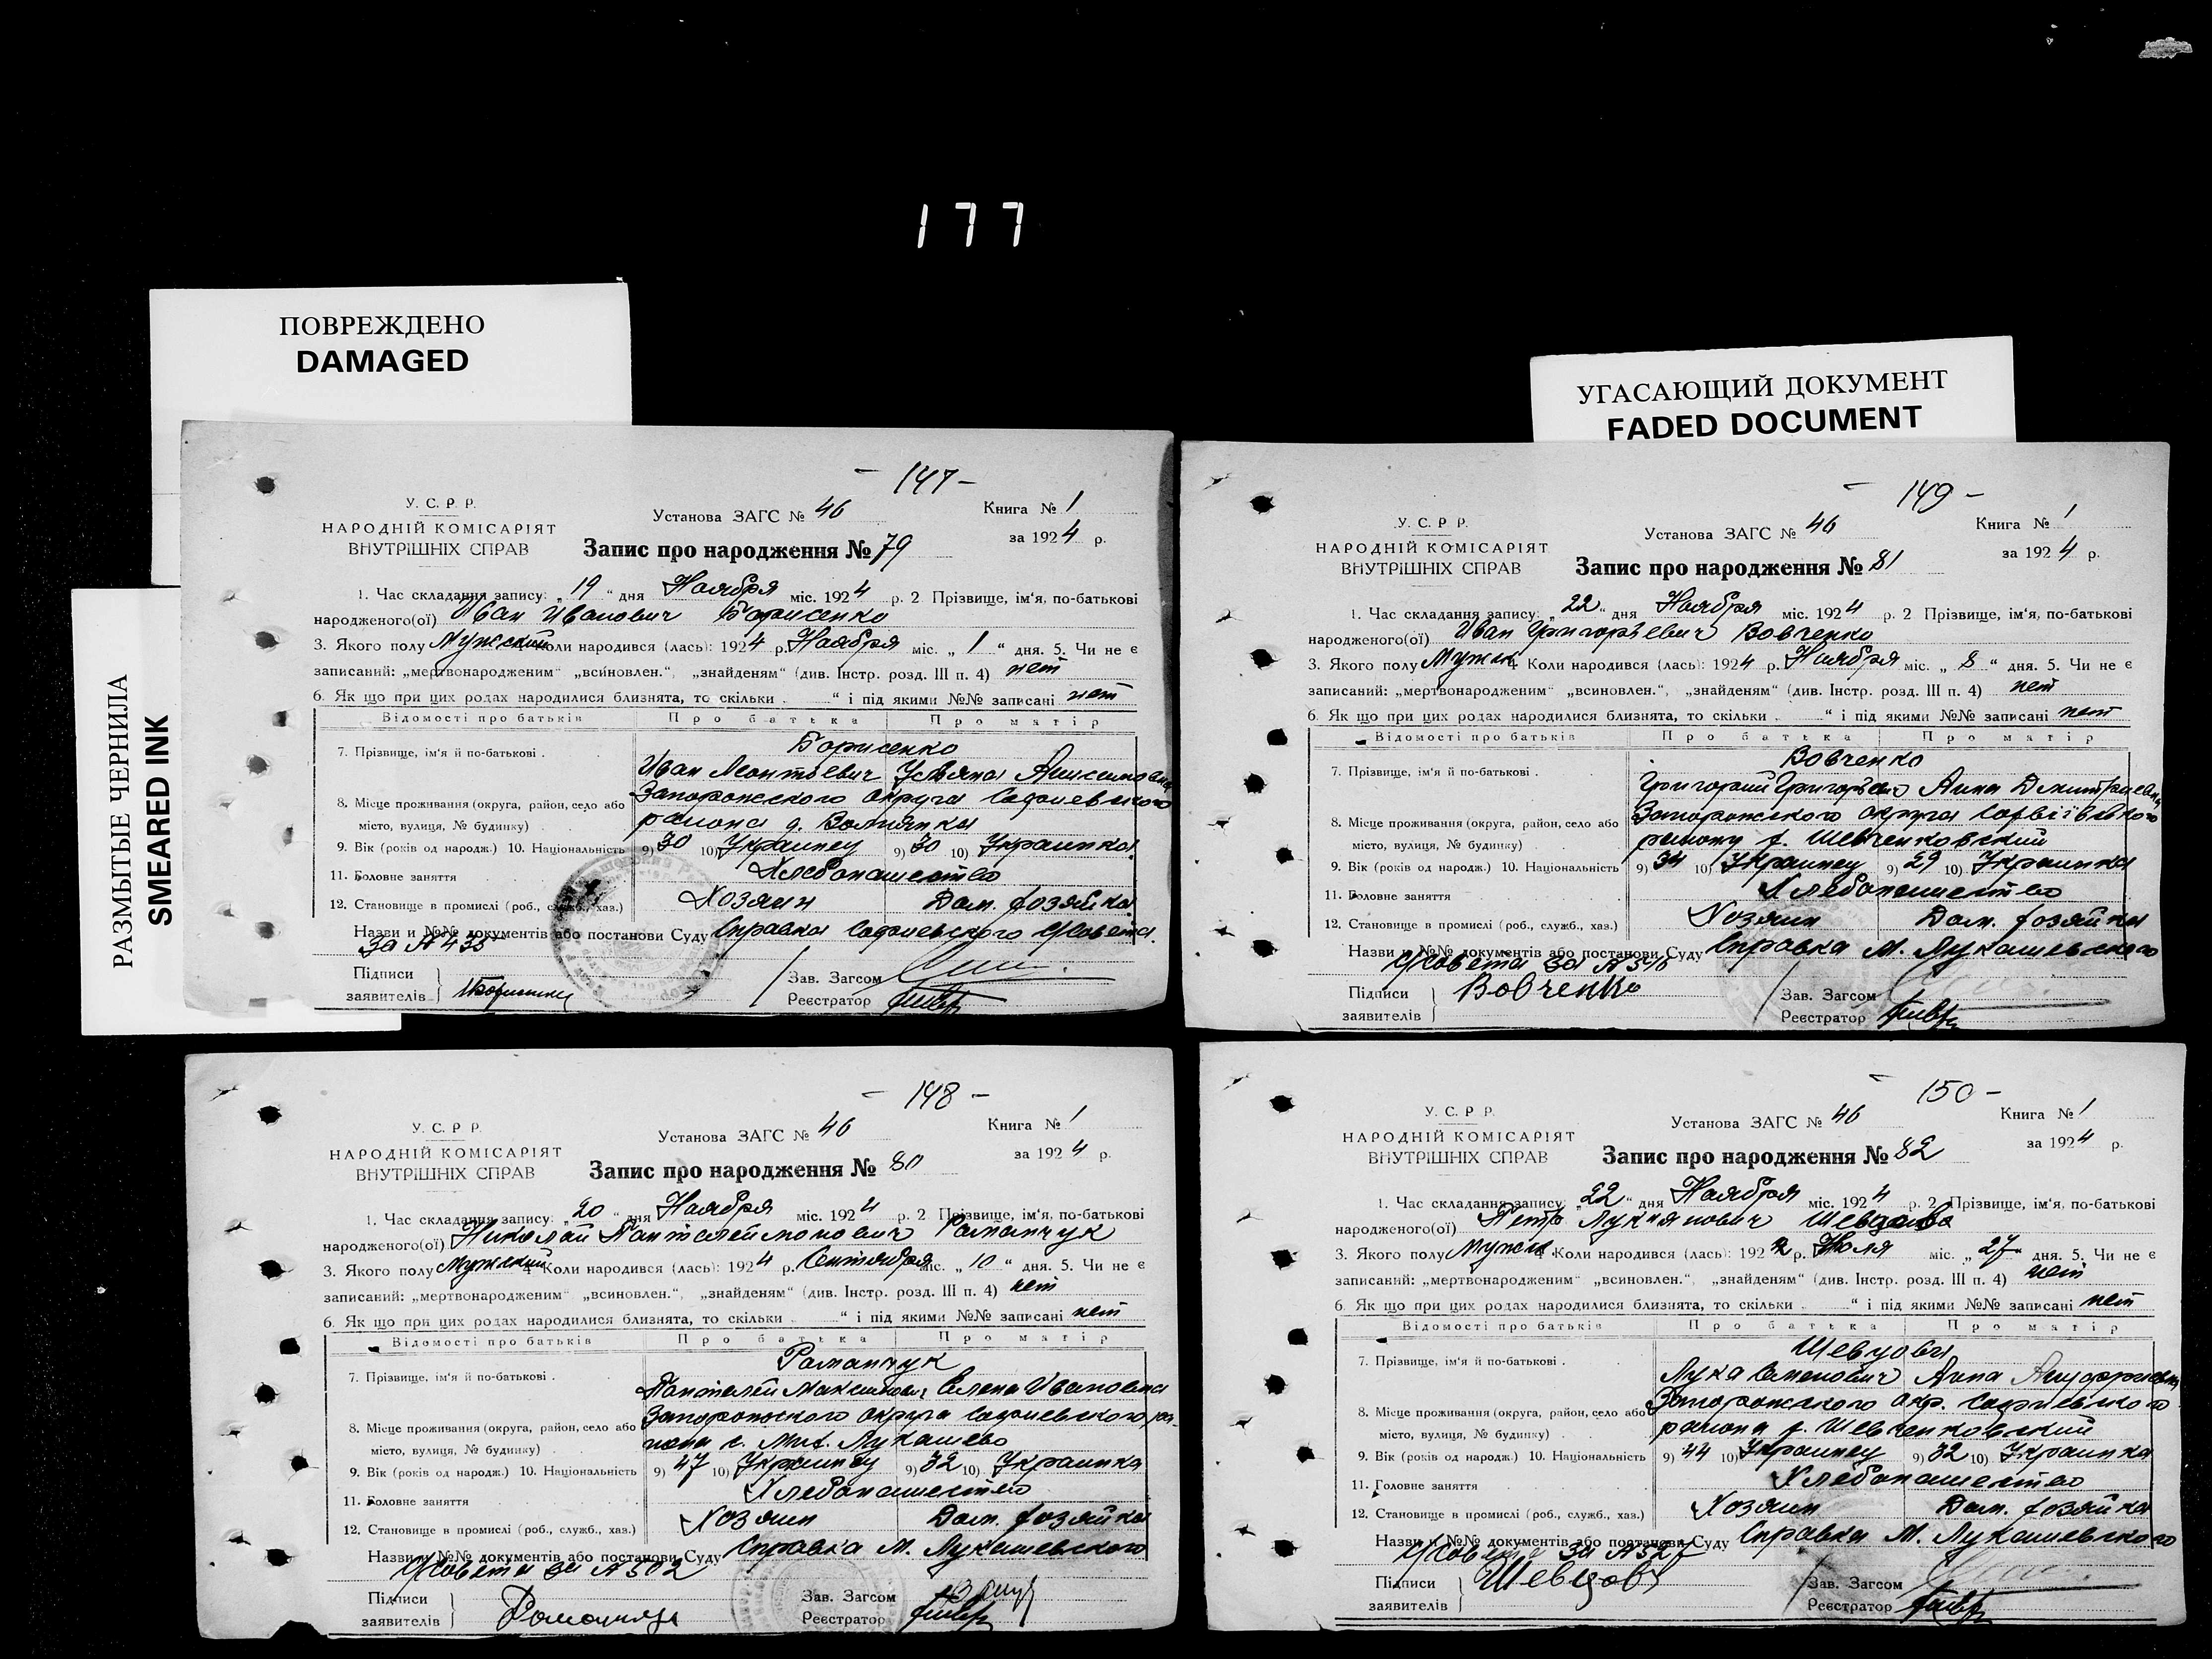 177
ПОВРЕЖДЕНО
DAMAGED
УГАСАЮЩИЙ ДОКУМЕНТ
FADED DOCUMENT
РАЗМЫТЫЕ ЧЕРНИЛА
SMEARED INK
- 147 -
У. С. Р. Р.
НАРОДНІЙ КОМІСАРІЯТ
ВНУТРІШНІХ СПРАВ
Установа ЗАГС № 46
Книга № 1
за 1924 р.
Запис про народження № 79
1. Час складання запису: „19“ дня Ноября міс. 1924 р. 2 Прізвище, ім'я, по-батькові
народженого(ої) Иван Иванович Борисенко
3. Якого полу Мужский Коли народився (лась): 1924 р. Ноября міс. „1“ дня. 5. Чи не є
записаний: „мертвонародженим“ „всиновлен.“, „знайденям“ (див. Інстр. розд. III п. 4) нет
6. Як що при цих родах народилися близнята, то скільки “ і під якими №№ записані нет
Відомості про батьків Про батька Про матір
7. Прізвище, ім'я й по-батькові . Борисенко
Иван Леонтьевич Ульяна
8. Місце проживання (округа, район, село або Запорожского округа Софиевского
місто, вулиця, № будинку) . района д.
9. Вік (років од народж.) 10. Національність 9) 30 10) Украинец 9) 30 10) Украинка
11. Головне заняття Хлебопашество
12. Становище в промислі (роб., служб., хаз.) Хозяин Дом. хозяйка
Назви и №№ документів або постанови Суду Справка Софиевского
за № 435
Підписи
заявителів
Зав. Загсом
Реєстратор
- 149 -
У. С. Р. Р.
НАРОДНІЙ КОМІСАРІЯТ
ВНУТРІШНІХ СПРАВ
Установа ЗАГС № 46
Книга № 1
за 1924 р.
Запис про народження № 81
1. Час складання запису: „22“ дня Ноября міс. 1924 р. 2 Прізвище, ім'я, по-батькові
народженого(ої) Иван Григорьевич Вовченко
3. Якого полу Мужск 4. Коли народився (лась): 1924 р. Ноября міс. „8“ дня. 5. Чи не є
записаний: „мертвонародженим“ „всиновлен.“, „знайденям“ (див. Інстр. розд. III п. 4) нет
6. Як що при цих родах народилися близнята, то скільки “ і під якими №№ записані нет
Відомості про батьків Про батька Про матір
7. Прізвище, ім'я й по-батькові . Вовченко
Григорий Григорьевич Анна Дмитриевна
8. Місце проживання (округа, район, село або Запорожского округа
місто, вулиця, № будинку) . району х. Шевченковский
9. Вік (років од народж.) 10. Національність 9) 34 10) Украинец 9) 29 10) Украинка
11. Головне заняття Хлебопашество
12. Становище в промислі (роб., служб., хаз.) Хозяин Дом. хозяйка
Назви и №№ документів або постанови Суду Справка М. Лукашевского
за №
Підписи
заявителів Вовченко
Зав. Загсом
Реєстратор
- 148 -
У. С. Р. Р.
НАРОДНІЙ КОМІСАРІЯТ
ВНУТРІШНІХ СПРАВ
Установа ЗАГС № 46
Книга № 1
за 1924 р.
Запис про народження № 80
1. Час складання запису: „20“ дня Ноября міс. 1924 р. 2 Прізвище, ім'я, по-батькові
народженого(ої) Николай Пантелеймонович Раманчук
3. Якого полу Мужский 4 Коли народився (лась): 1924 р. Сентября міс. „10“ дня. 5. Чи не є
записаний: „мертвонародженим“ „всиновлен.“, „знайденям“ (див. Інстр. розд. III п. 4) нет
6. Як що при цих родах народилися близнята, то скільки “ і під якими №№ записані нет
Відомості про батьків Про батька Про матір
7. Прізвище, ім'я й по-батькові . Раманчук
Пантелей Максимович Елена Ивановна
8. Місце проживання (округа, район, село або Запорожского округа Софиевского ра-
місто, вулиця, № будинку) . иона с. Лукашево
9. Вік (років од народж.) 10. Національність 9) 47 10) Украинец 9) 32 10) Украинка
11. Головне заняття Хлебопашество
12. Становище в промислі (роб., служб., хаз.) Хозяин Дом. хозяйка
Назви и №№ документів або постанови Суду Справка М. Лукашевского
за № 502
Підписи
заявителів
Зав. Загсом
Реєстратор
- 150 -
У. С. Р. Р.
НАРОДНІЙ КОМІСАРІЯТ
ВНУТРІШНІХ СПРАВ
Установа ЗАГС № 46
Книга № 1
за 1924 р.
Запис про народження № 82
1. Час складання запису: „22“ дня Ноября міс. 1924 р. 2 Прізвище, ім'я, по-батькові
народженого(ої) Петр Лукянович
3. Якого полу Мужск. Коли народився (лась): 1922 р. Июля міс. „27“ дня. 5. Чи не є
записаний: „мертвонародженим“ „всиновлен.“, „знайденям“ (див. Інстр. розд. III п. 4) нет
6. Як що при цих родах народилися близнята, то скільки “ і під якими №№ записані нет
Відомості про батьків Про батька Про матір
7. Прізвище, ім'я й по-батькові . Шевцовы
Лука Семенович Анна
8. Місце проживання (округа, район, село або Запорожского окр. Софиевского
місто, вулиця, № будинку) . района х. Шевченковский
9. Вік (років од народж.) 10. Національність 9) 44 10) Украинец 9) 32 10) Украинка
11. Головне заняття Хлебопашество
12. Становище в промислі (роб., служб., хаз.) Хозяин Дом. хозяйка
Назви и №№ документів або постанови Суду Справка М. Лукашевского
за № 527
Підписи
заявителів Шевцов
Зав. Загсом
Реєстратор